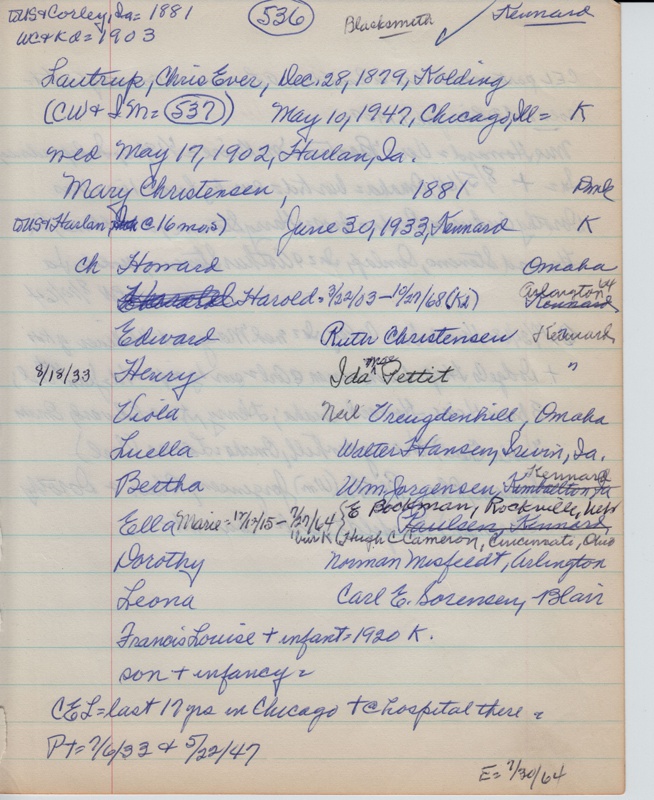 TUS & Corley, Ia = 1881 (536) Blacksmith ✓ Kennard
WC & Kd = 1903
Lautrup, Chris Ever, Dec. 28, 1879, Kolding
(CW & IM = (537)) May 10, 1947, Chicago, Ill = K
wed May 17, 1902, Harlan, Ia.
Mary Christensen, 1881 Dmk
TUS & Harlan C 16 mo,s) June 30, 1933, Kennard K
ch Howard Omaha
Harold = 3/22/03 - 10/27/68 (Kd) Arlington 64 Kennard
Edward Ruth Christensen Kennard
8/18/33 Henry Ida Mae Pettit "
Viola Neil Vreugdenhill, Omaha
Luella Walter Hansen, Irwin, Ia.
Bertha Wm Jorgensen, Kimballton Ia Kennard
Ella Marie = 12/12/15 - 7/27/64 {E Bockman, Rockville, Nebr
Paulsen, Kennard
(Hugh C Cameron, Cincinnati, Ohio
Dorothy Norman Misfeldt, Arlington
Leona Carl E. Sorensen, Blair
Francis Louise + infant = 1920 K.
son + infancy =
CEL = last 17 yrs in Chicago + C hospital there =
PT = 7/6/33 & 5/22/47
E = 7/30/64